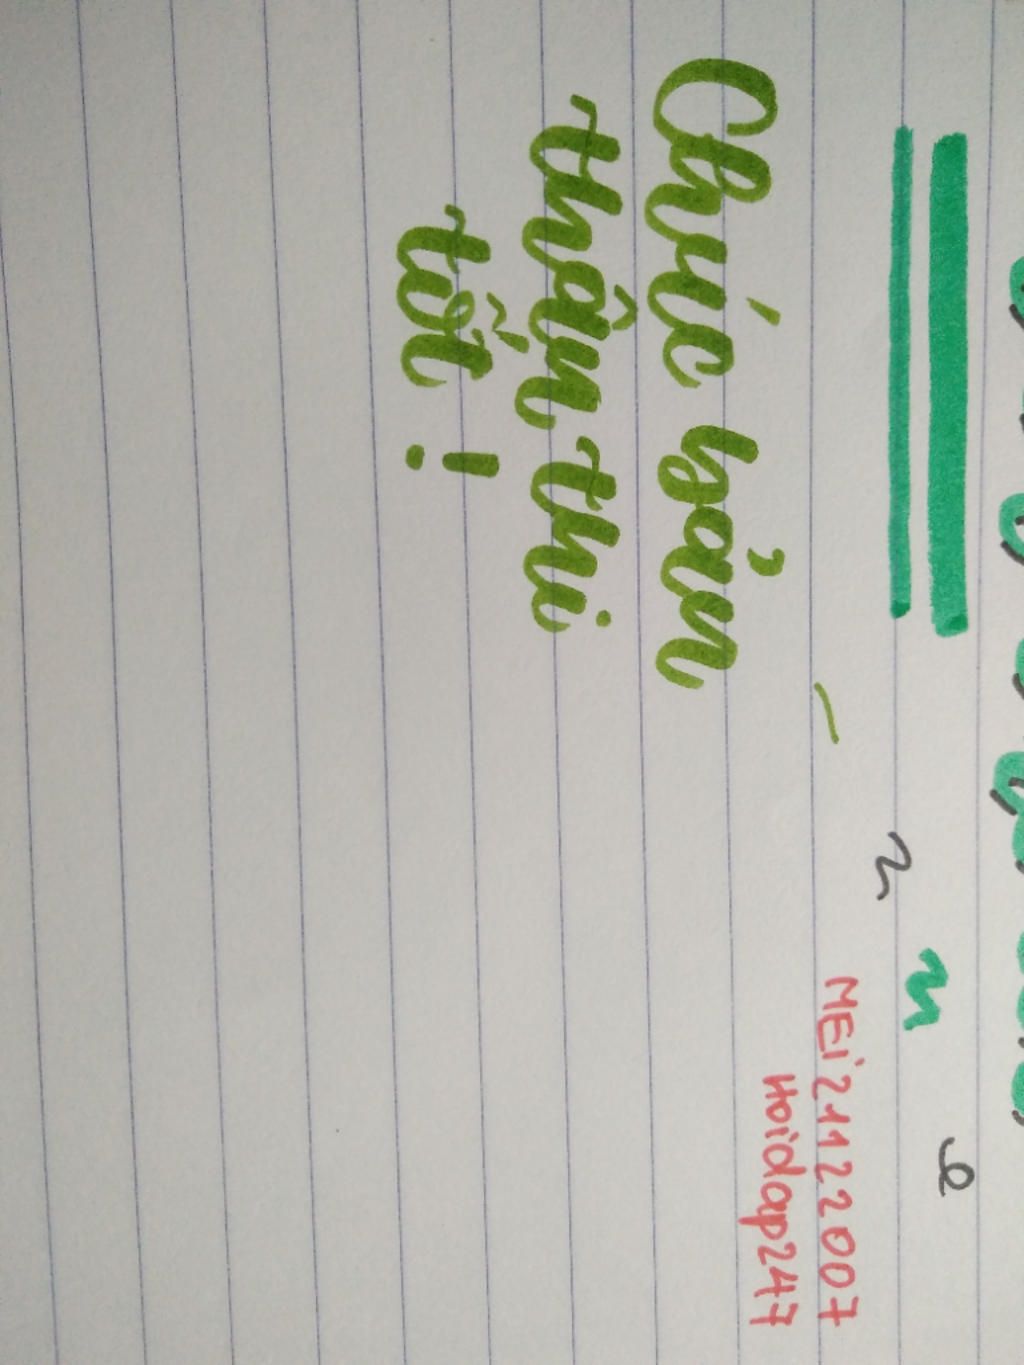 Chúc bản
thân thi
tốt !
MEi21122007
Hoidap247